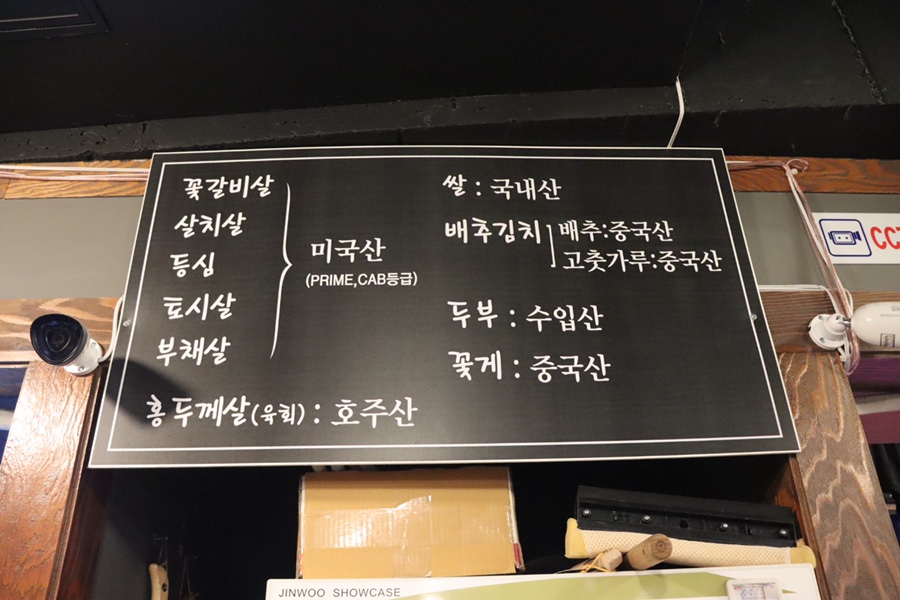 꽃갈비살
살치살
등심
토시살
부채살
미국산
(PRIME,CAB등급)
홍두께살(육회) : 호주산
쌀 : 국내산
배추김치 배추:중국산
고춧가루:중국산
두부 : 수입산
꽃게 : 중국산
JINWOO SHOWCASE